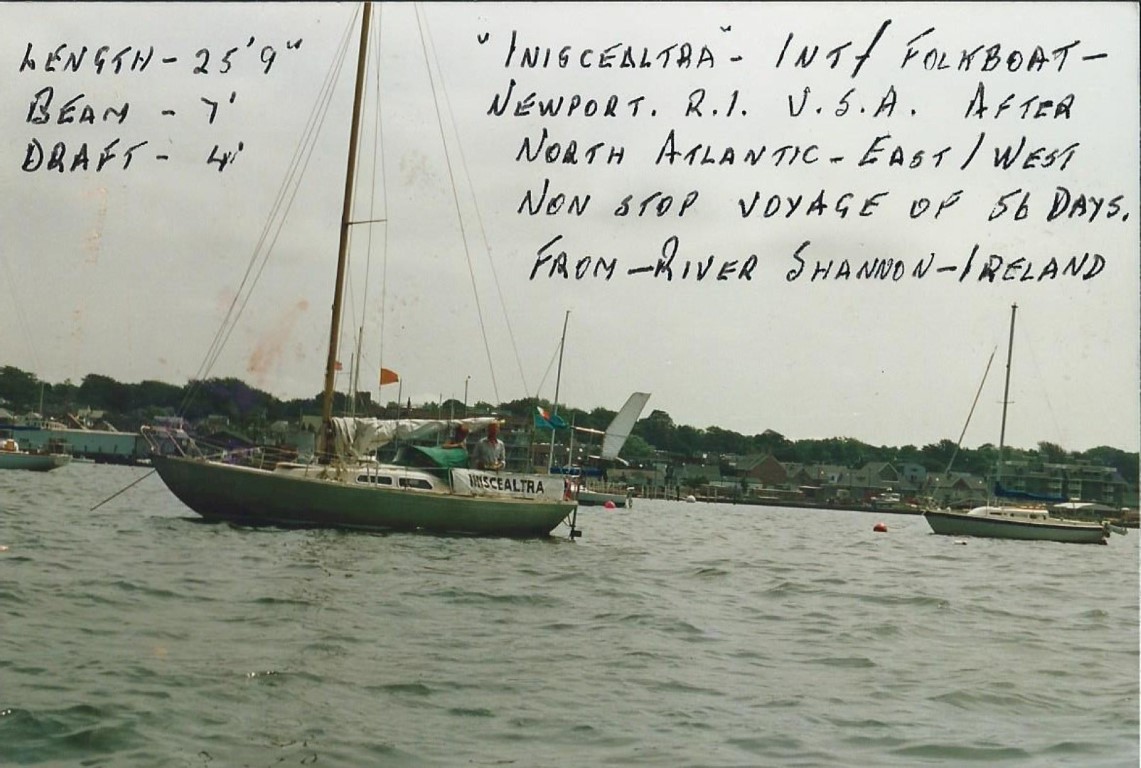 LENGTH - 25'9"
BEAM - 7'
DRAFT - 4'
"INISCEALTRA" - INT/ FOLKBOAT -
NEWPORT. R.I. U.S.A. AFTER
NORTH ATLANTIC - EAST/WEST
NON STOP VOYAGE OF 56 DAYS.
FROM - RIVER SHANNON - IRELAND
INISCEALTRA